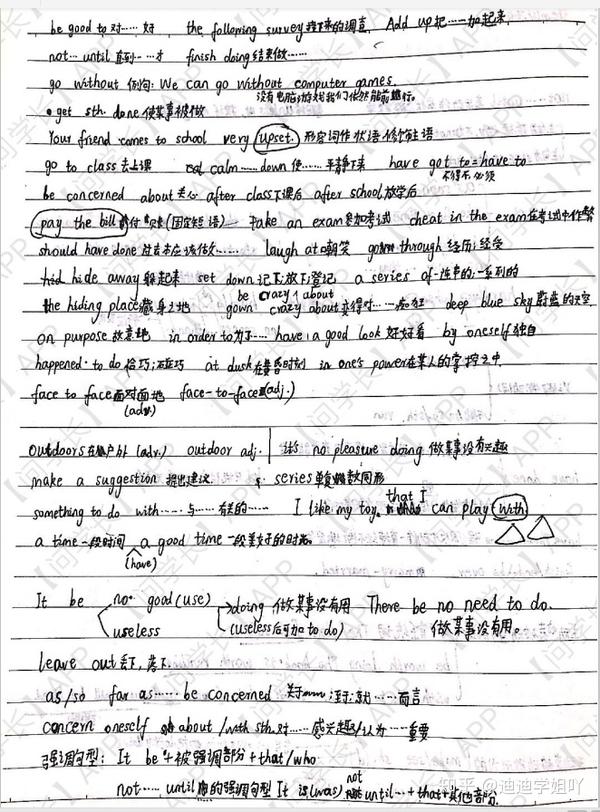 be good to 对……好, the following survey 接下来的调查, Add up 把……加起来
not…until 直到……才 finish doing 结束做……
go without 例句: We can go without computer games.
没有电脑游戏我们依然能前行。
•get sth. done 使某事被做
Your friend comes to school very upset. 形容词作状语修饰主语
go to class 去上课 calm……down 使……平静下来 have got to = have to
不得不 必须
be concerned about 关心 after class 下课后 after school 放学后
pay the bill 付账(固定短语) Take an exam 参加考试 cheat in the exam 在考试中作弊
should have done 过去本应该做…… laugh at 嘲笑 go through 经历;经受
hide away 躲起来 set down 记下;放下;登记 a series of 一连串的;一系列的
be crazy about
the hiding place 藏身之地 crazy about 变得对……痴狂 deep blue sky 蔚蓝的天空
on purpose 故意地 in order to 为了… have a good look 好好看 by oneself 独自
happened to do 恰巧;碰巧 at dusk 在黄昏时刻 in one's power 在某人的掌控之中
face to face 面对面地 face-to-face (adj.)
(adv.)
outdoors 在户外 (adv.) outdoor adj. | it's no pleasure doing 做某事没有乐趣
make a suggestion 提出建议 series 单复数同形
that I
something to do with……与……有关的…… I like my toy. can play with
a time 一段时间 a good time 一段美好的时光
(have)
It be no good (use) doing 做某事没有用 There be no need to do.
useless (useless后可加 to do) 做某事没有用。
leave out 丢下,落下
as/so far as……be concerned 关于……;就……而言
concern oneself about /with sth. 对……感兴趣/认为……重要
强调句型: It be + 被强调部分 + that/who
not…until 的强调句型 It is(was) not until…+that+其他部分
知乎 @迪迪学姐吖
【问学长】APP